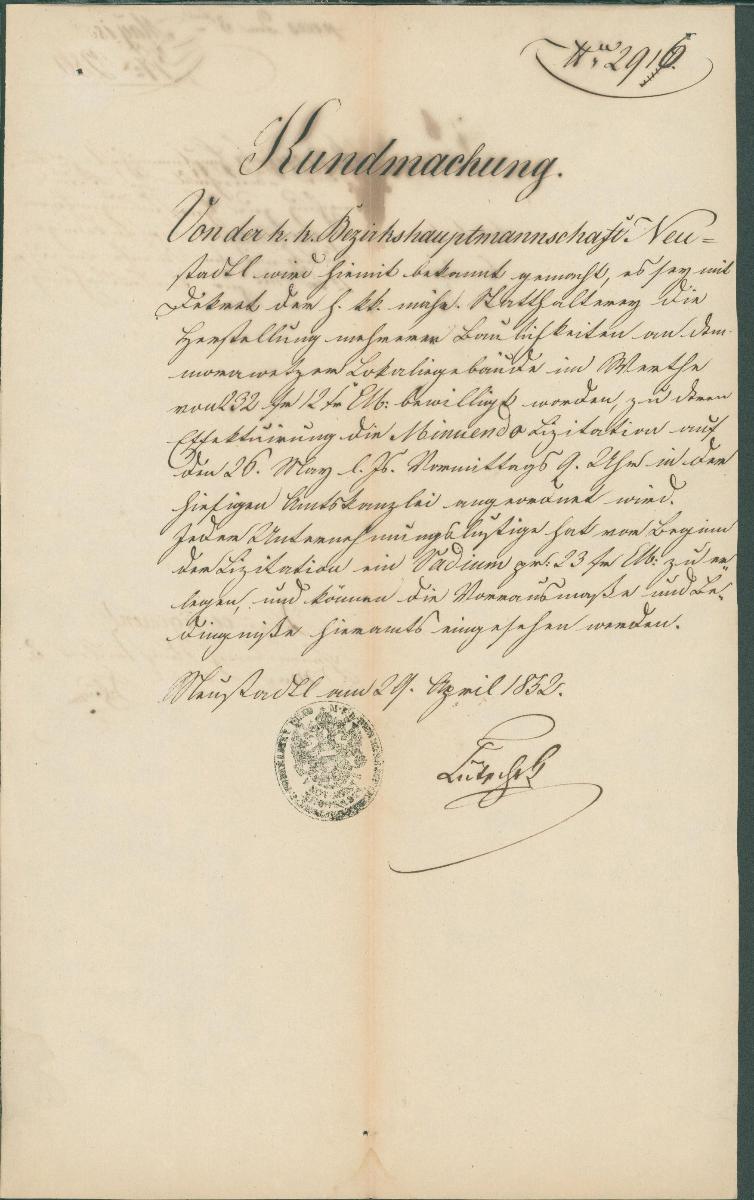 Nr 2916
Kundmachung.
Von der k. k. Bezirkshauptmannschaft Neu=
stadtl wird hiemit bekannt gemacht, es sey mit
Dekret der h. kk. mähr. Statthalterey die
Herstellung mehrerer Baulichkeiten an dem
morawetzer Lokaliegebäude im Werthe
von 232 fr 12 xr CM: bewilligt worden, zu deren
Effektuirung die Minuendo Lizitation auf
den 26. May l. Js. Vormittags 9. Uhr in der
hiesigen Amtskanzlei angeordnet wird.
Jeder Unternehmungslustige hat vor Beginn
der Lizitation ein Vadium pr. 23 fr CM: zu er
legen, und können die Vorausmaße und Be-
dingniße hieramts eingesehen werden.
Neustadtl am 29. April 1852.